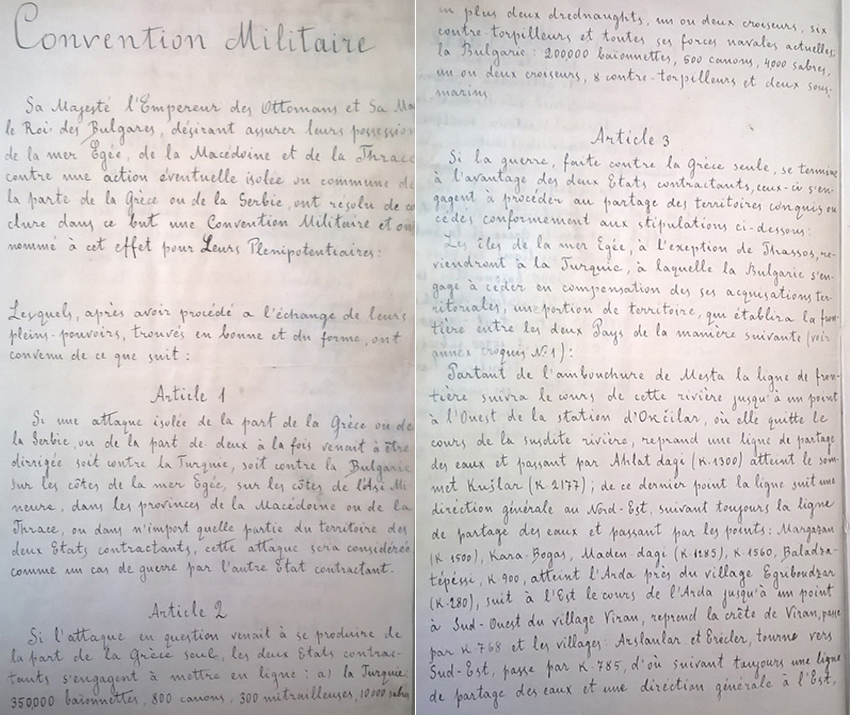 Convention Militaire
Sa Majesté l'Empereur des Ottomans et Sa Ma
le Roi des Bulgares, désirant assurer leurs possession
de la mer Egée, de la Macédoine et de la Thrace
contre une action éventuelle isolée ou commune de
la part de la Grèce ou de la Serbie, ont résolu de co
clure dans ce but une Convention Militaire et on
nommé à cet effet pour Leurs Plenipotentiaires:
Lesquels, après avoir procédé a l'échange de leurs
pleins-pouvoirs, trouvés en bonne et du forme, ont
convenu de ce que suit:
Article 1
Si une attaque isolée de la part de la Grèce ou de
la Serbie, ou de la part de deux à la fois venait à être
dirigée soit contre la Turquie, soit contre la Bulgarie
sur les côtes de la mer Egée, sur les côtes de l'Asi Mi-
neure, dans les provinces de la Macédoine ou de la
Thrace, ou dans n'import quelle partie du territoire des
deux Etats contractants, cette attaque sera considérée
comme un cas de guerre par l'autre Etat contractant.
Article 2
Si l'attaque en question venait à se produire de
la part de la Grèce seule, les deux Etats contrac-
tants s'engagent à mettre en ligne: a) la Turquie:
350000 baionnettes, 800 canons, 300 mitrailleuses, 10000 sabres
en plus deux drednaughts, un ou deux croiseurs, six
contre-torpilleurs et toutes ses forces navales actuelles,
la Bulgarie: 200000 baionnettes, 500 canons, 4000 sabres,
un ou deux croiseurs, 8 contre-torpilleurs et deux sous-
marins
Article 3
Si la guerre, faite contre la Grèce seule, se termine
à l'avantage des deux Etats contractants, ceux-ci s'en-
gagent à procéder au partage des territoires conquis ou
cédés conformement aux stipulations ci-dessous:
Les îles de la mer Egée, à l'exeption de Thassos, re-
viendront à la Turquie, à laquelle la Bulgarie s'en-
gage à céder en compensation des ses acquisations ter-
ritoriales, un portion de territoire, qui établira la fron-
tière entre les deux Pays de la manière suivante (voir
annex croquis №1):
Partant de l'ambouchure de Mesta la ligne de fron-
tière suivra le cours de cette rivière jusqu'à un point
à l'Ouest de la station d'Okčilar, où elle quitte le
cours de la susdite rivière, reprand une ligne de partage
des eaux et passant par Ahlat dagi (K.1300) atteint le som-
met Kušlar (K.2177); de ce dernier point la ligne suit une
diréction générale au Nord-Est, suivant toujours la ligne
de partage des eaux et passant par les points: Margazan
(K 1500), Kara-Bogas, Maden-dagi (K 1285), K 1560, Baladza-
tépéssi, K 900, atteint l'Arda près du village Egriboudzar
(K-280), suit à l'Est le cours de l'Arda jusqu'à un point
à Sud-Ouest du village Viran, reprend la crête de Viran, passe
par K 768 et les villages: Arslanlar et Erécler, tourne vers
Sud-Est, passe par K.785, d'où suivant toujours une ligne
de partage des eaux et une diréction générale à l'Est,